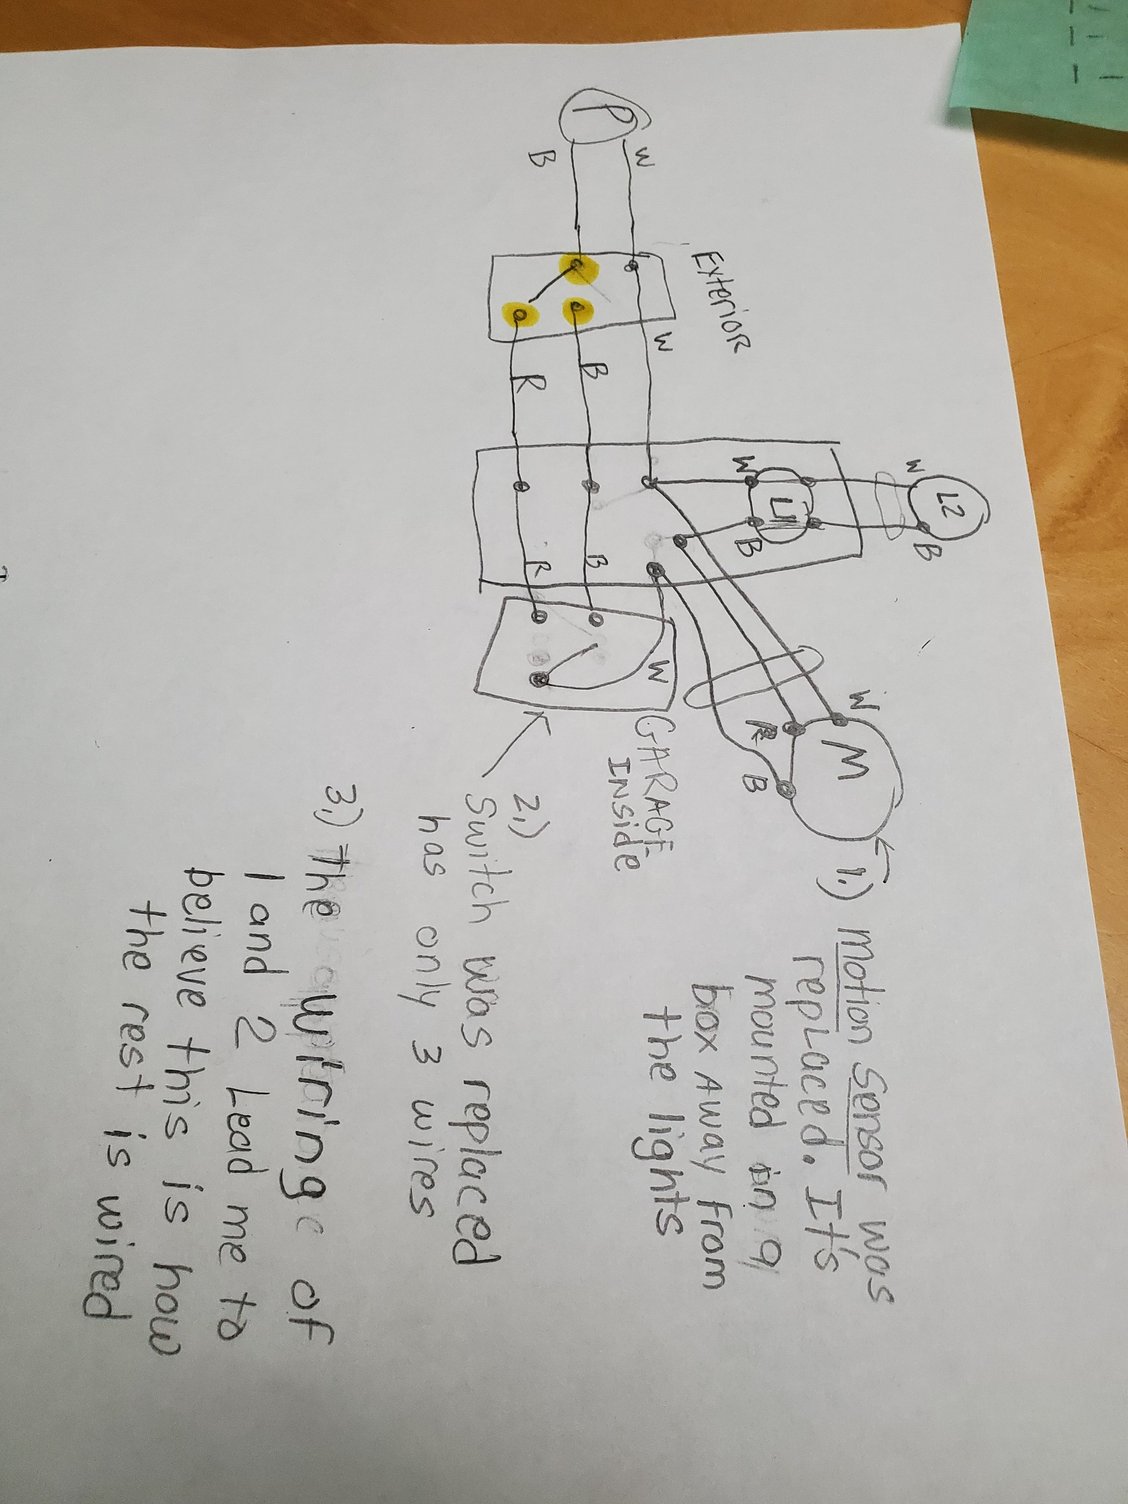 P
B
W
Exterior
W
B
R
W
L1
B
W
L2
B
R
B
W
GARAGE
INSIDE
W
M
R
B
1.) Motion Sensor was
replaced. It's
mounted in a
box away from
the lights
2.)
Switch was replaced
has only 3 wires
3.) The wiring of
1 and 2 Lead me to
believe this is how
the rest is wired